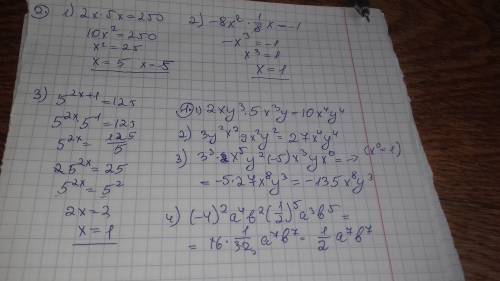 ② 1) 2x·5x=250
10x²=250
x²=25
x=5 x-5
2) -8x²·1/8x=-1
-x³=-1
x³=1
x=1
3) 5^(2x+1)=125
5^(2x)·5^1=125
5^(2x)=125/5
25^(2x)=25
5^(2x)=5²
2x=2
x=1
① 1) 2xy³·5x³y-10x⁴y⁴
2) 3y²x²9x²y²=27x⁴y⁴
3) 3³·x⁵y²(-5)x³yx⁰=→ (x⁰=1)
=-5·27x⁸y³=-135x⁸y³
4) (-4)²a⁴b²(1/2)⁵a³b⁵=
=16·1/32a⁷b⁷=1/2a⁷b⁷